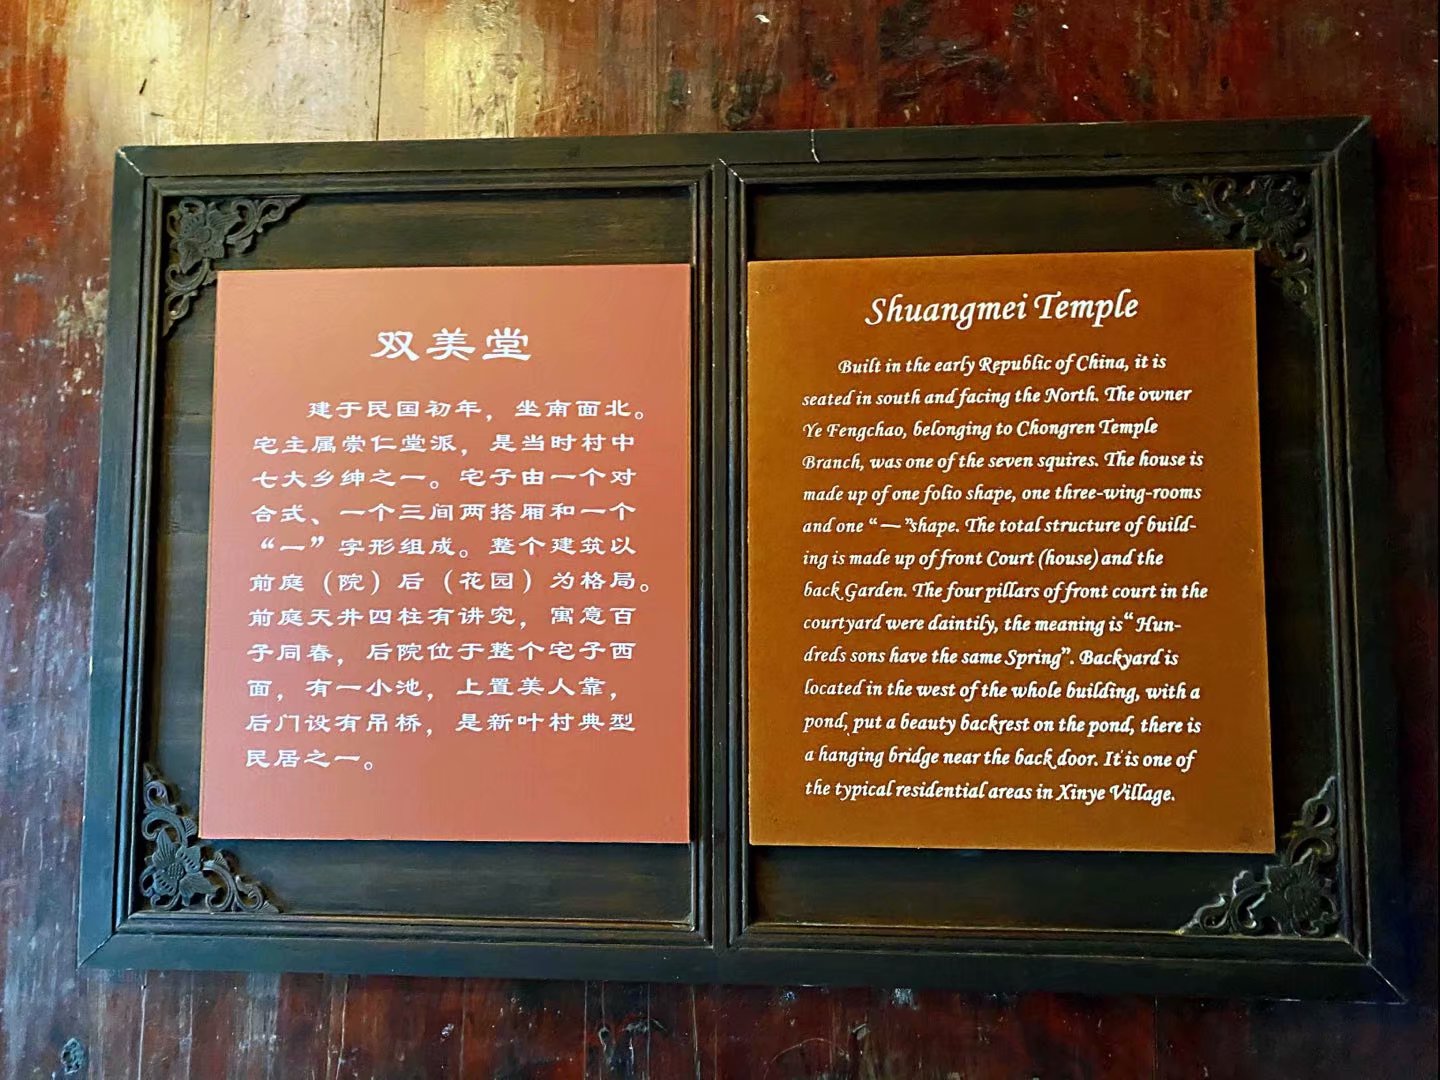 双美堂
建于民国初年，坐南面北。
宅主属崇仁堂派，是当时村中
七大乡绅之一。宅子由一个对
合式、一个三间两搭厢和一个
“一”字形组成。整个建筑以
前庭（院）后（花园）为格局。
前庭天井四柱有讲究，寓意百
子同春，后院位于整个宅子西
面，有一小池，上置美人靠，
后门设有吊桥，是新叶村典型
民居之一。
Shuangmei Temple
Built in the early Republic of China, it is
seated in south and facing the North. The owner
Ye Fengchao, belonging to Chongren Temple
Branch, was one of the seven squires. The house is
made up of one folio shape, one three-wing-rooms
and one “一”shape. The total structure of build-
ing is made up of front Court (house) and the
back Garden. The four pillars of front court in the
courtyard were daintily, the meaning is“Hun-
dreds sons have the same Spring”. Backyard is
located in the west of the whole building, with a
pond, put a beauty backrest on the pond, there is
a hanging bridge near the back door. It is one of
the typical residential areas in Xinye Village.